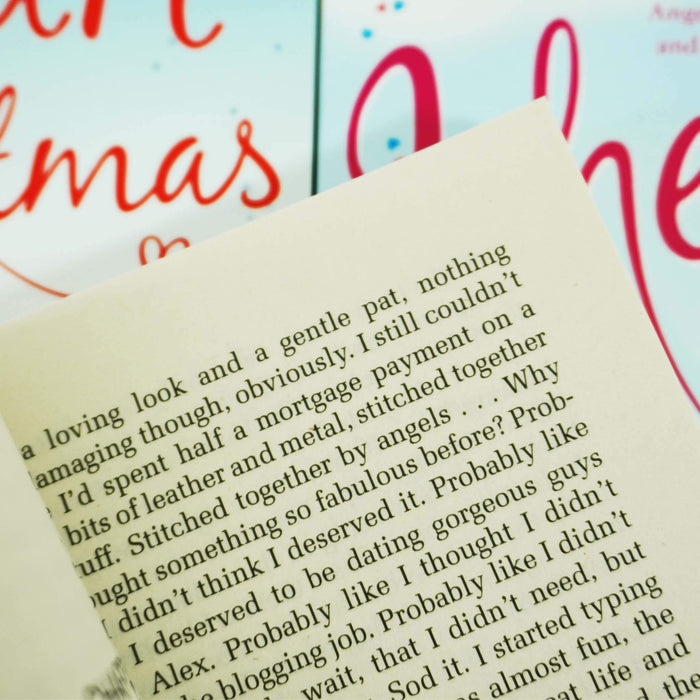 Ange
and
tmas
a loving look and a gentle pat, nothing
amaging though, obviously. I still couldn't
I'd spent half a mortgage payment on a
bits of leather and metal, stitched together
uff. Stitched together by angels . . . Why
ught something so fabulous before? Prob-
I didn't think I deserved it. Probably like
I deserved to be dating gorgeous guys
Alex. Probably like I thought I didn't
blogging job. Probably like I didn't
wait, that I didn't need, but
Sod it. I started typing
as almost fun, the
life and
the